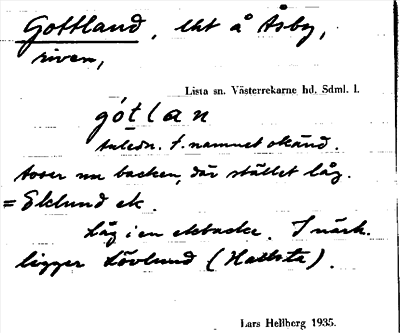 Gottland, lht å Åsby,
riven,
Lista sn. Västerrekarne hd. Sdml. l.
gótlan
t. namnet okänd.
nu backen, där stället låg.
= Eklund ek.
Låg i en ekbacke. I närh.
ligger Lövlund (Hallsta).
Lars Hellberg 1935.